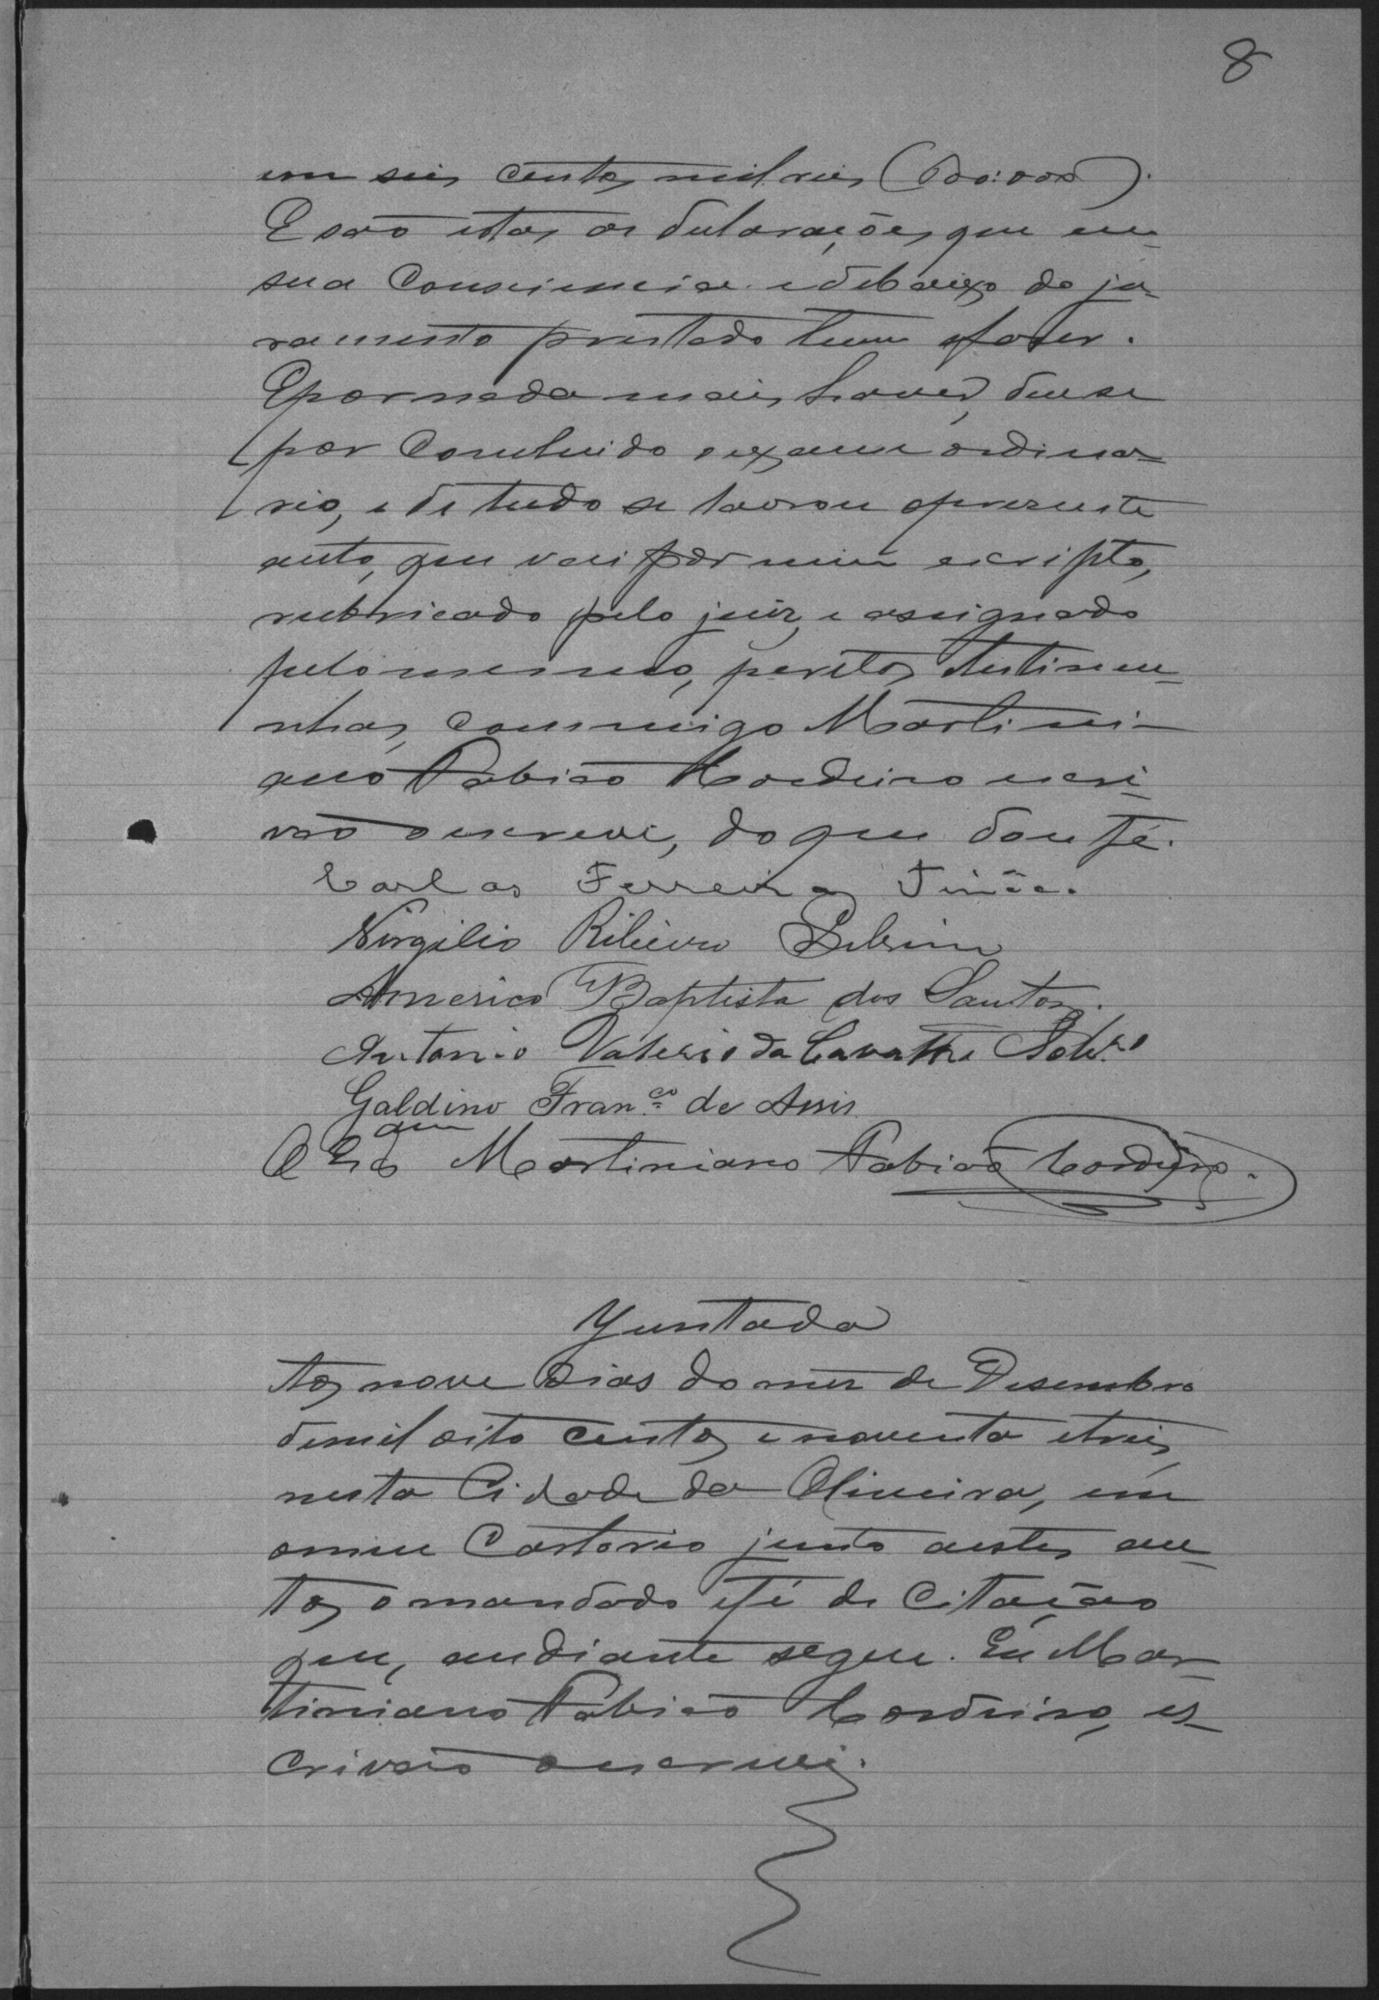 8
em seis centos mil reis (600:000).
E são estas as declarações que em
sua Consciencia e debaixo do ju-
ramento prestado tem a fazer.
E por nada mais haver, deu se
por Concluido o exame ordina-
rio, e de tudo se lavrou o presente
auto, que vai por mim escripto,
rubricado pelo juiz, e assignado
pelo mesmo, peritos e testimu-
nhas, commigo Martini-
ano Fabião Cordeiro escri-
vão o escrevi, do que dou fé.
Carlos Ferreira
Virgilio Ribeiro
Americo Baptista dos Santos.
Antonio Valerio da Sobr.o
Galdino Fran.co de Assis
O Es.am Martiniano Fabião Cordeiro.
Yuntada
Aos nove Dias do mez de Desembro
de mil oito centos e noventa e tres,
nesta Cidade da Oliveira, em
o meu Cartorio junto a estes au-
tos o mandado e fé de Citação
que, em diante segue. Eu Mar-
tiniano Fabião Cordeiro, es-
crivão o escrevi.